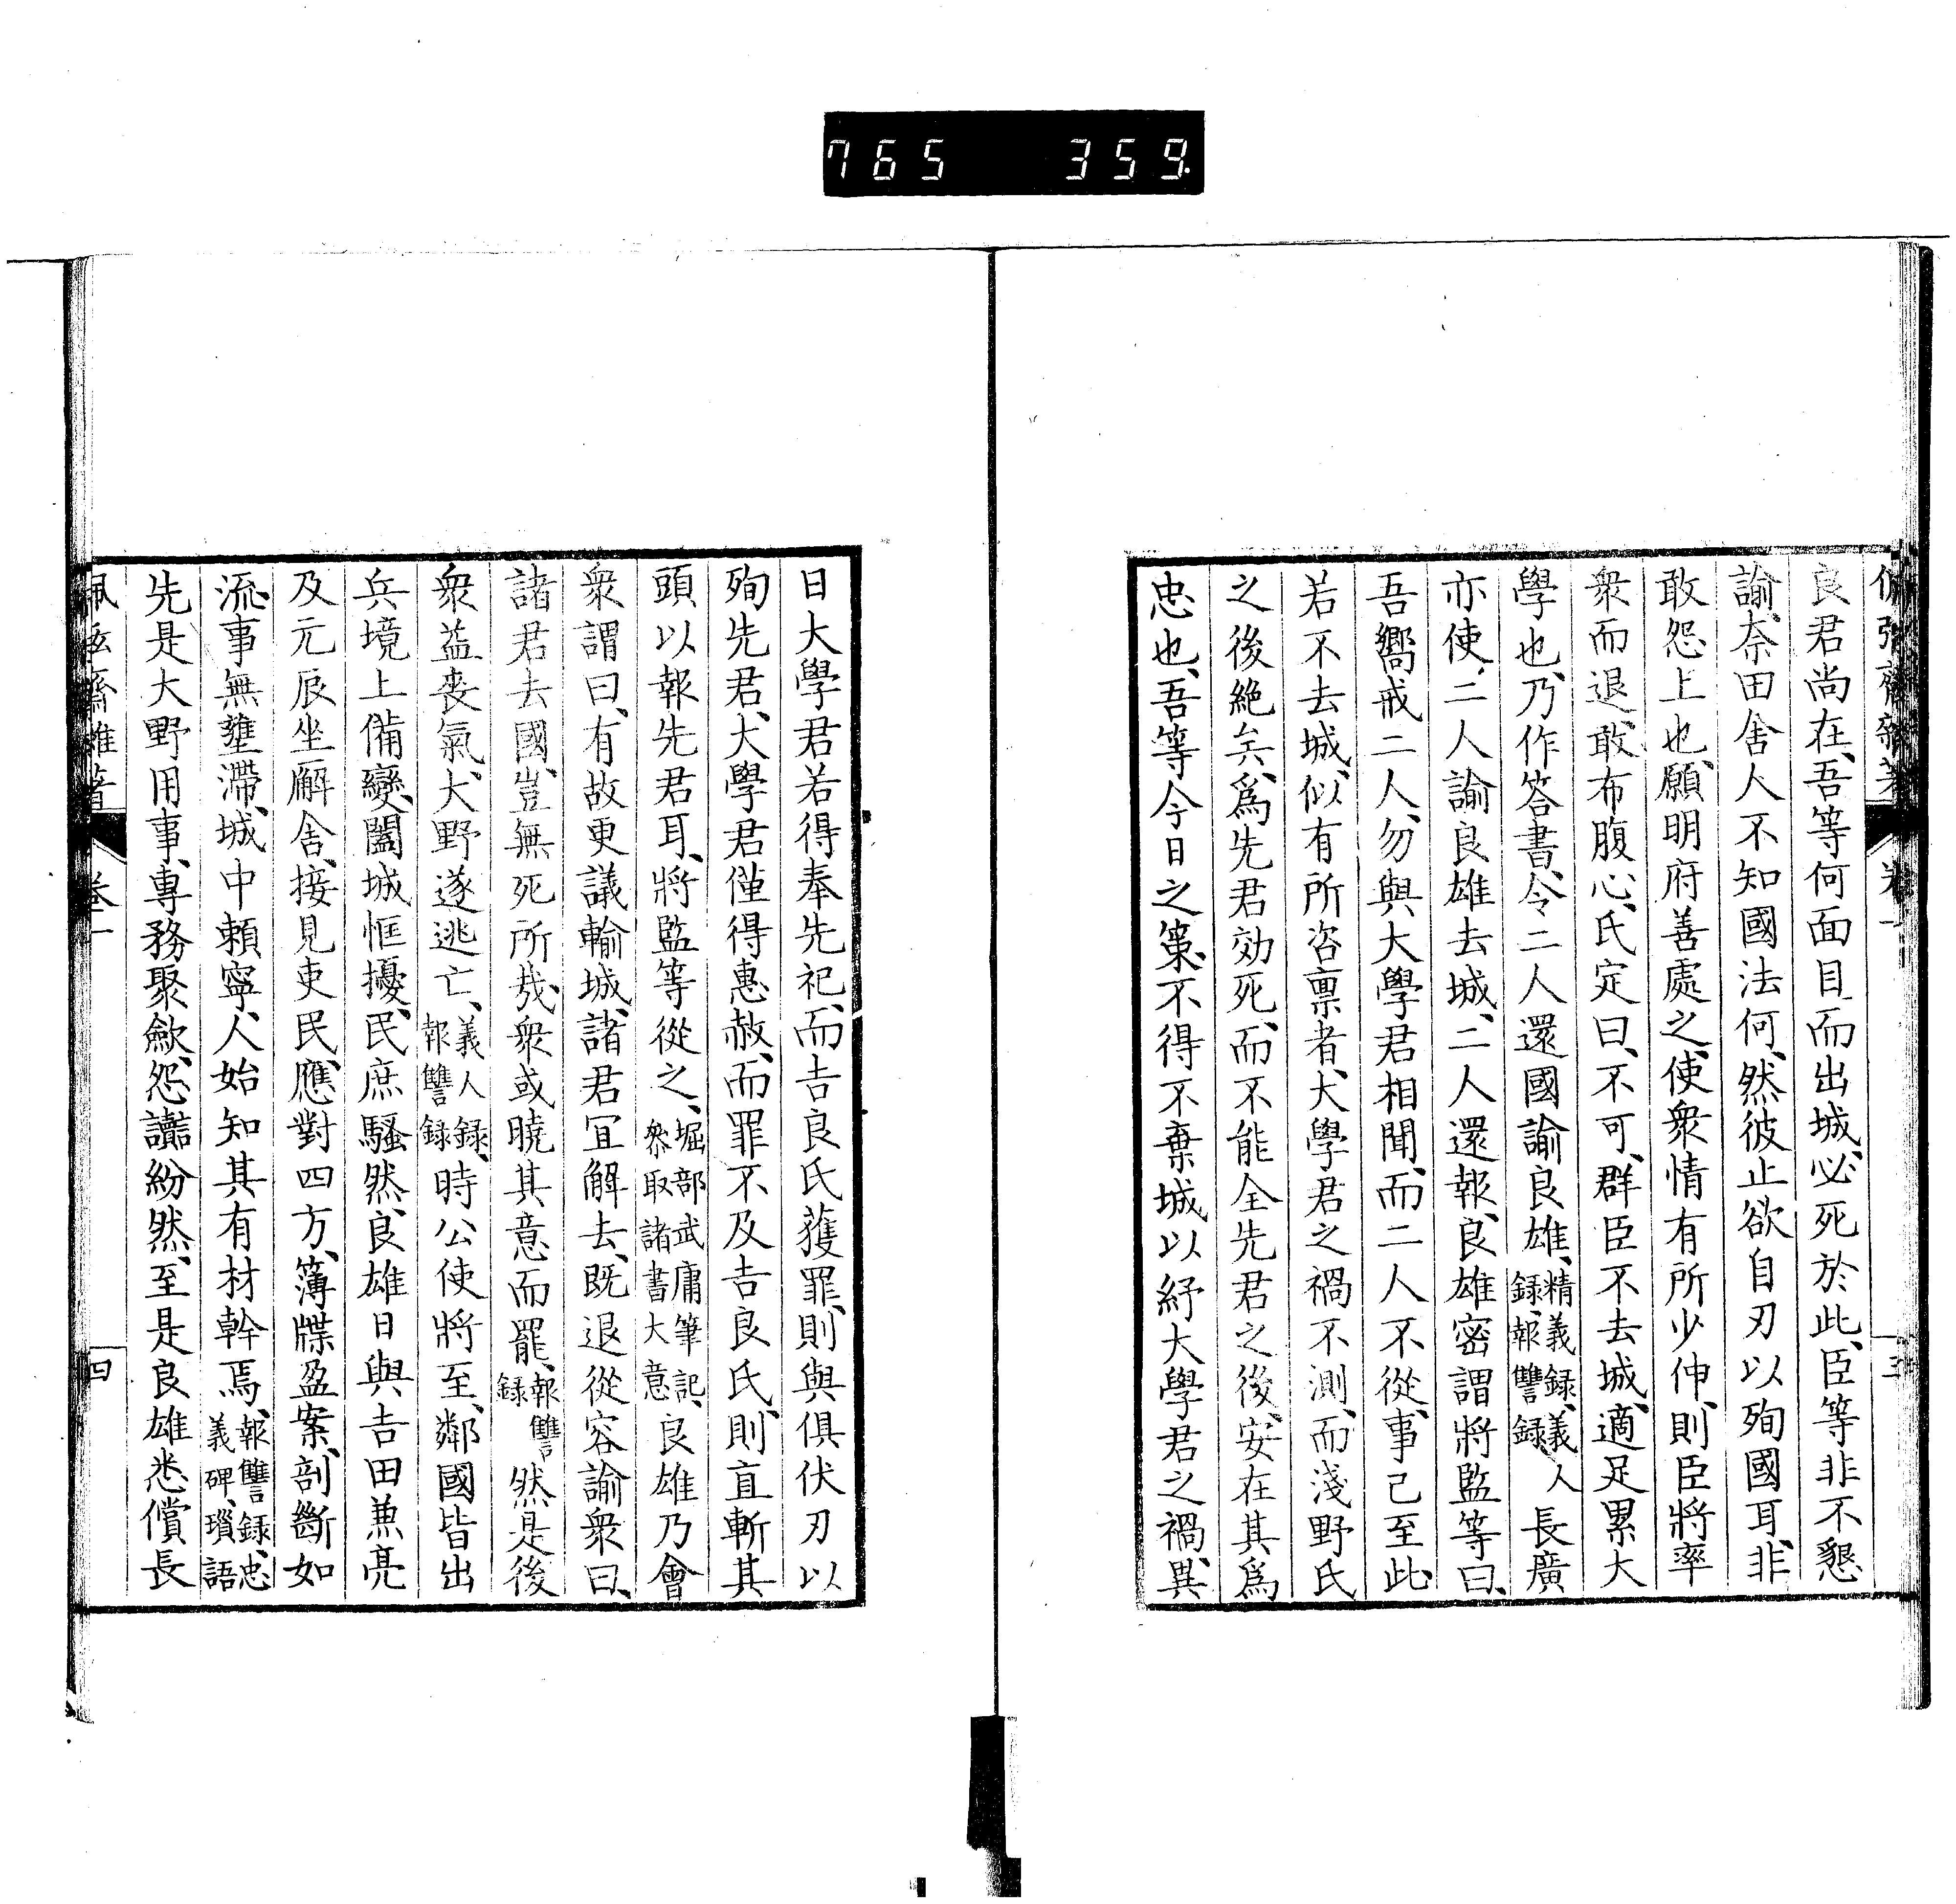 765 359
佩弦齋雜著 卷一 三
良君尚在、吾等何面目而出城、必死於此、臣等非不懇
諭、奈田舍人不知國法何、然彼止欲自刃以殉國耳、非
敢怨上也、願明府善處之、使衆情有所少伸、則臣將率
衆而退、敢布腹心、氏定曰、不可、群臣不去城、適足累大
學也、乃作答書、令二人還國諭良雄、精義録、義人録、報讐録、長廣
亦使二人諭良雄去城、二人還報、良雄密謂將監等曰、
吾嚮戒二人、勿與大學君相聞、而二人不從、事已至此、
若不去城、似有所咨禀者、大學君之禍不測、而淺野氏
之後絶矣、爲先君効死、而不能全先君之後、安在其爲
忠也、吾等今日之策、不得不棄城以紓大學君之禍、異
日大學君若得奉先祀、而吉良氏獲罪、則與俱伏刃以
殉先君、大學君僅得惠赦、而罪不及吉良氏、則直斬其
頭以報先君耳、將監等從之、堀部武庸筆記、參取諸書大意、良雄乃會
衆謂曰、有故更議輸城、諸君宜解去、既退從容諭衆曰、
諸君去國、豈無死所哉、衆或曉其意而罷、報讐録 然是後
衆益喪氣、大野遂逃亡、義人録、報讐録 時公使將至、鄰國皆出
兵境上備變、闔城恇擾、民庶騷然、良雄日與吉田兼亮
及元辰坐廨舍、接見吏民、應對四方、簿牒盈案、剖斷如
流、事無壅滯、城中頼寧、人始知其有材幹焉、報讐録、忠義碑、瑣語
先是大野用事、專務聚斂、怨讟紛然、至是良雄悉償長
佩弦齋雜著 卷一 四